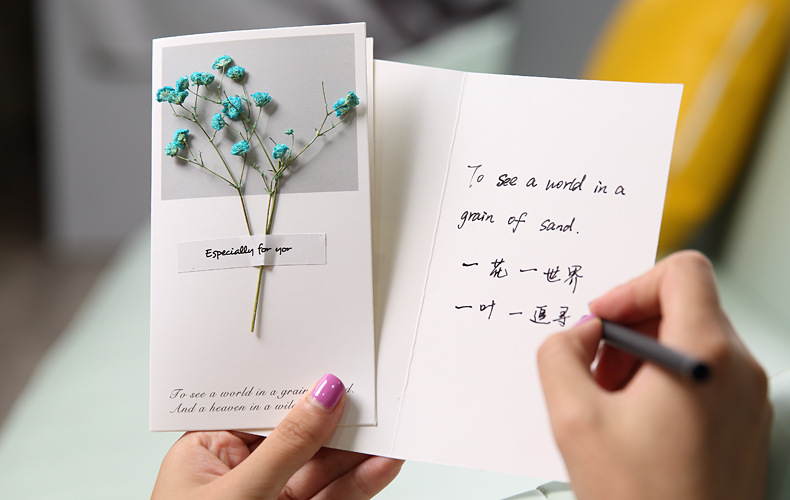 Especially for yor
To see a world in a grain
And a heaven in a wil
To see a world in a
grain of sand.
一花一世界
一叶一追寻